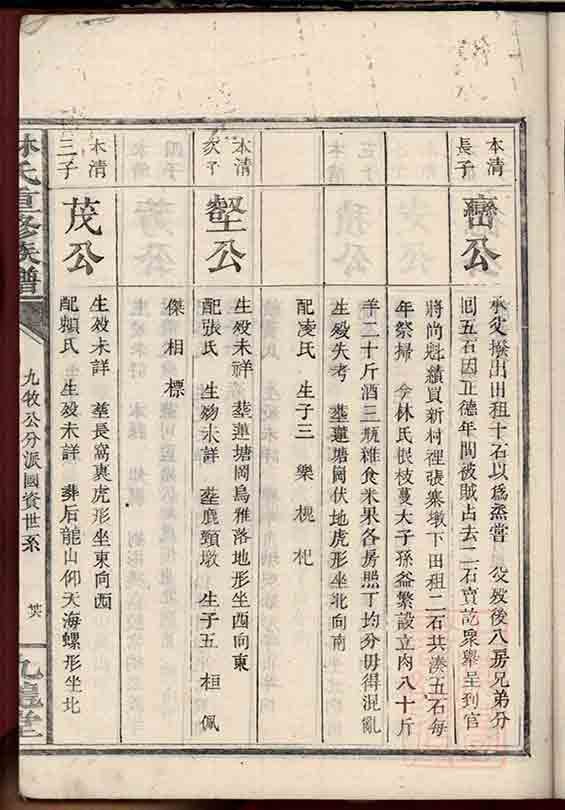 本清
長子
巒公
承父撥出田租十石以爲蒸嘗 公歿後八房兄弟分
回五石因正德年間被賊占去二石賣訖衆舉呈到官
將尚魁續買新村裡張寨墩下田租二石共湊五石每
年祭掃 今林氏根枝蔓大子孫益繁設立肉八十斤
羊二十斤酒三瓶雜食米果各房照丁均分毋得混亂
生歿失考 塟蓮塘岡伏地虎形坐北向南
配凌氏 生子三 樂 槐 杞
本清
次子
壑公
生歿未祥 塟蓮塘岡烏雅落地形坐西向東
配張氏 生歿未詳 塟鹿頸墩 生子五 桓 佩
傑 相 標
本清
三子
茂公
生歿未詳 塟長窩裏虎形坐東向西
配賴氏 生歿未詳 葬后龍山仰天海螺形坐北
林氏重修族譜
九牧公分派國資世系
廿六
九龍堂